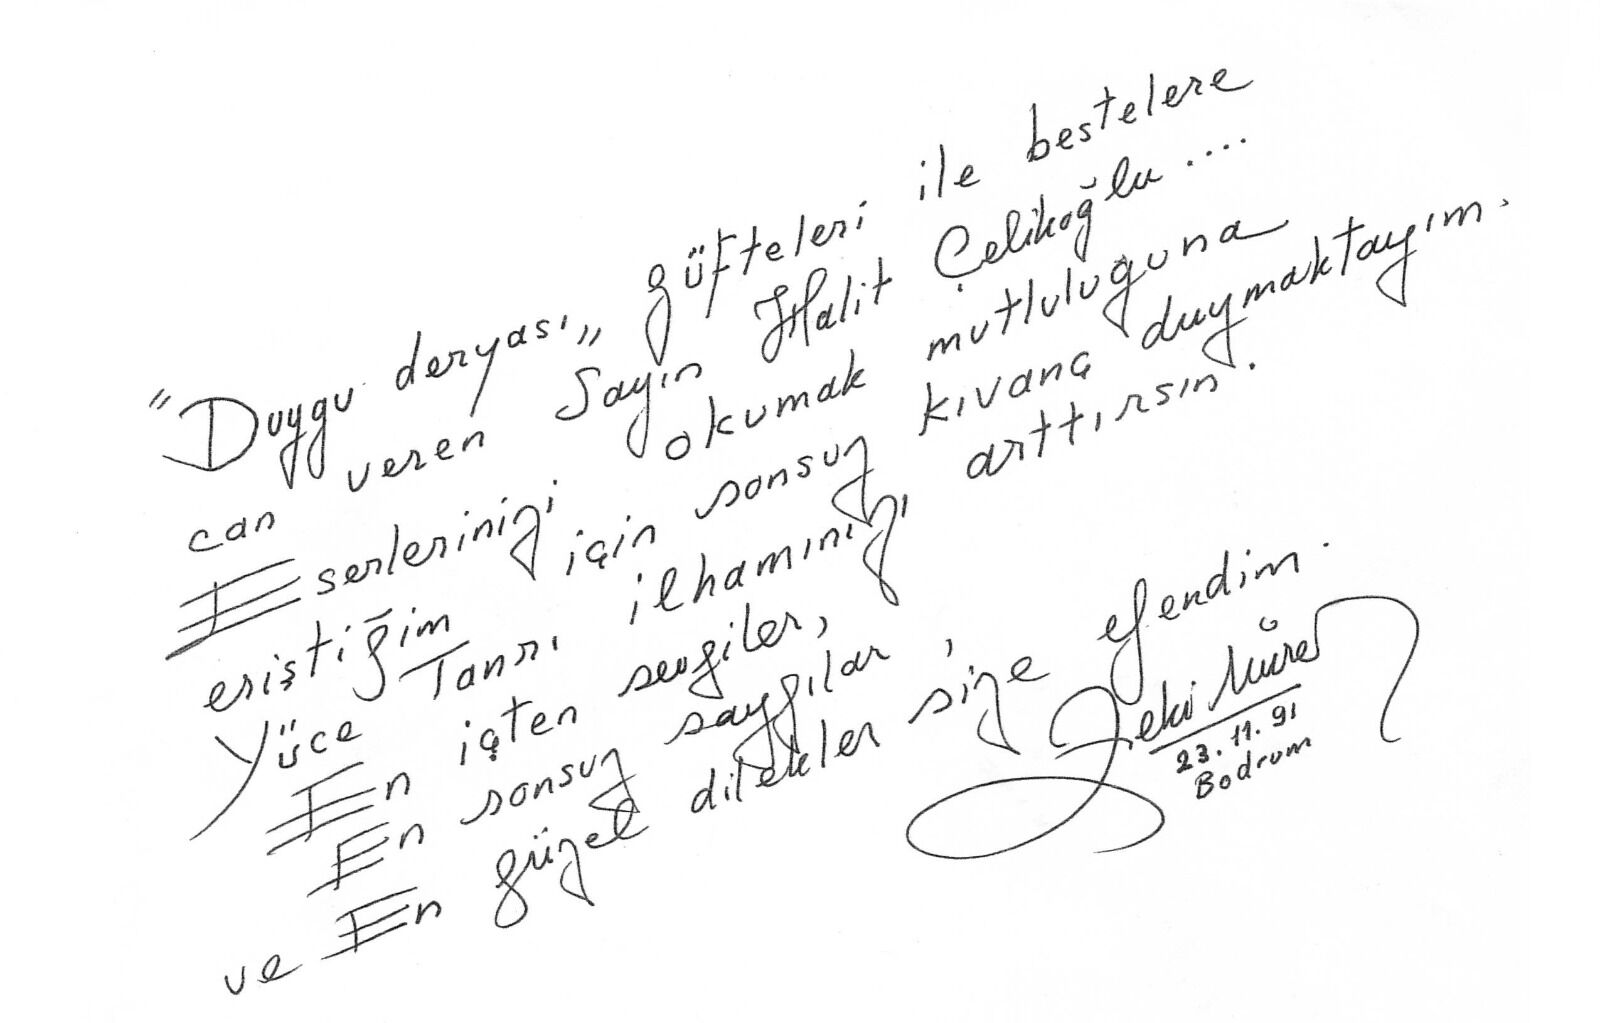 "Duygu deryası„ güfteleri ile bestelere
can veren Sayın Halit Çelikoğlu ....
Eserlerinizi okumak mutluluguna
eriştiğim için sonsuz kıvanç duymaktayım.
Yüce Tanrı ilhamınızı arttırsın.
En içten sevgiler,
En sonsuz saygılar,
ve En güzel dilekler size efendim.
Zeki Müren
23.11.91
Bodrum